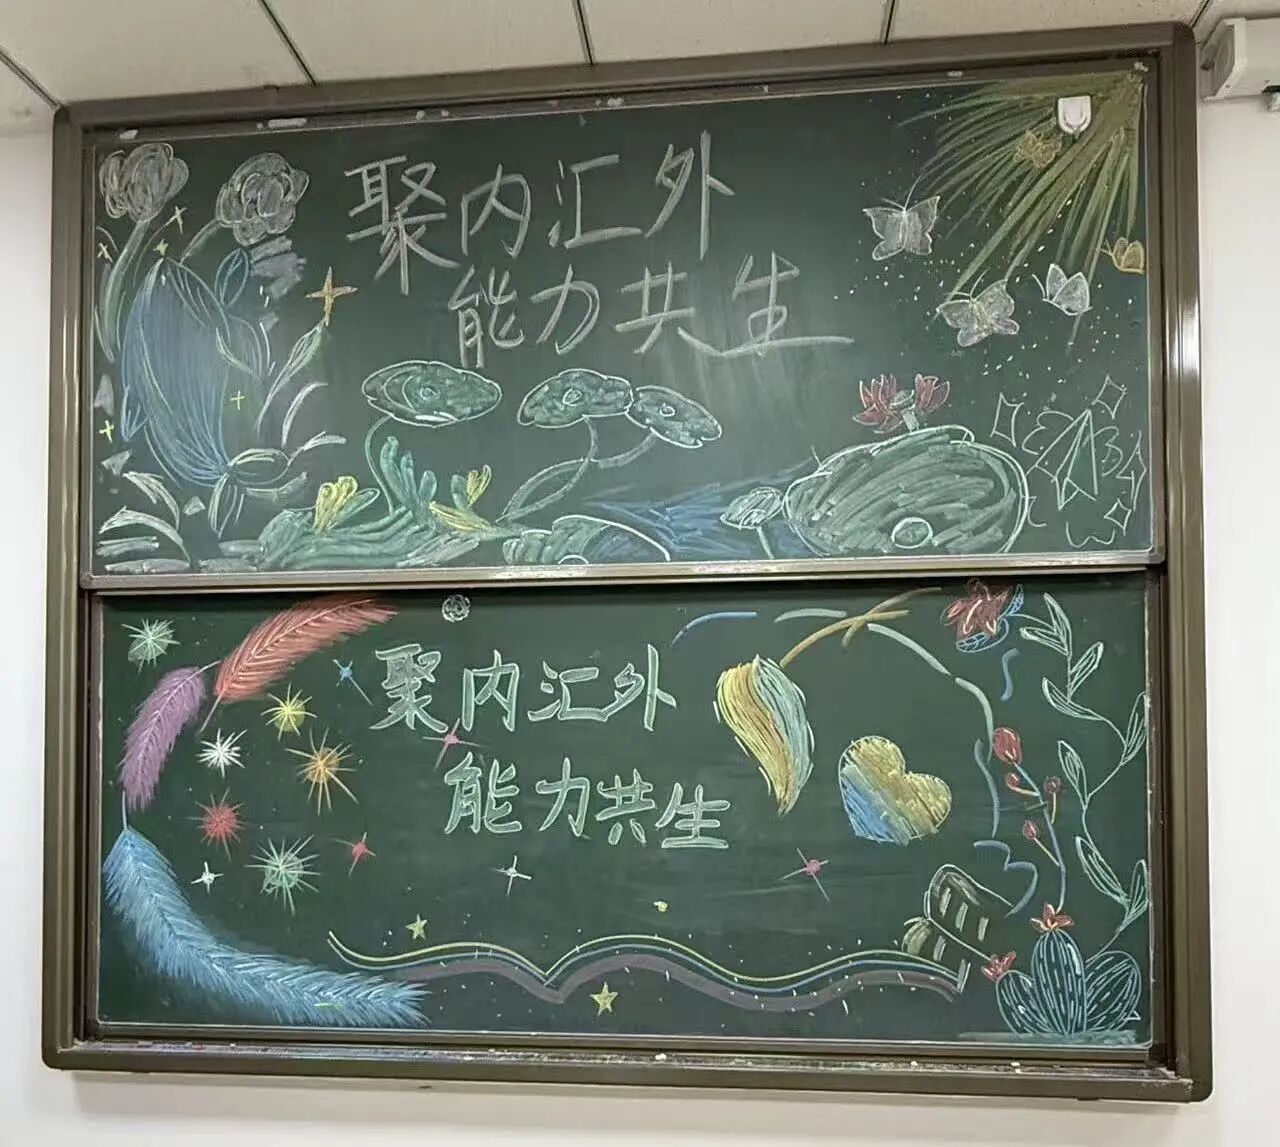 聚内汇外
能力共生
聚内汇外
能力共生